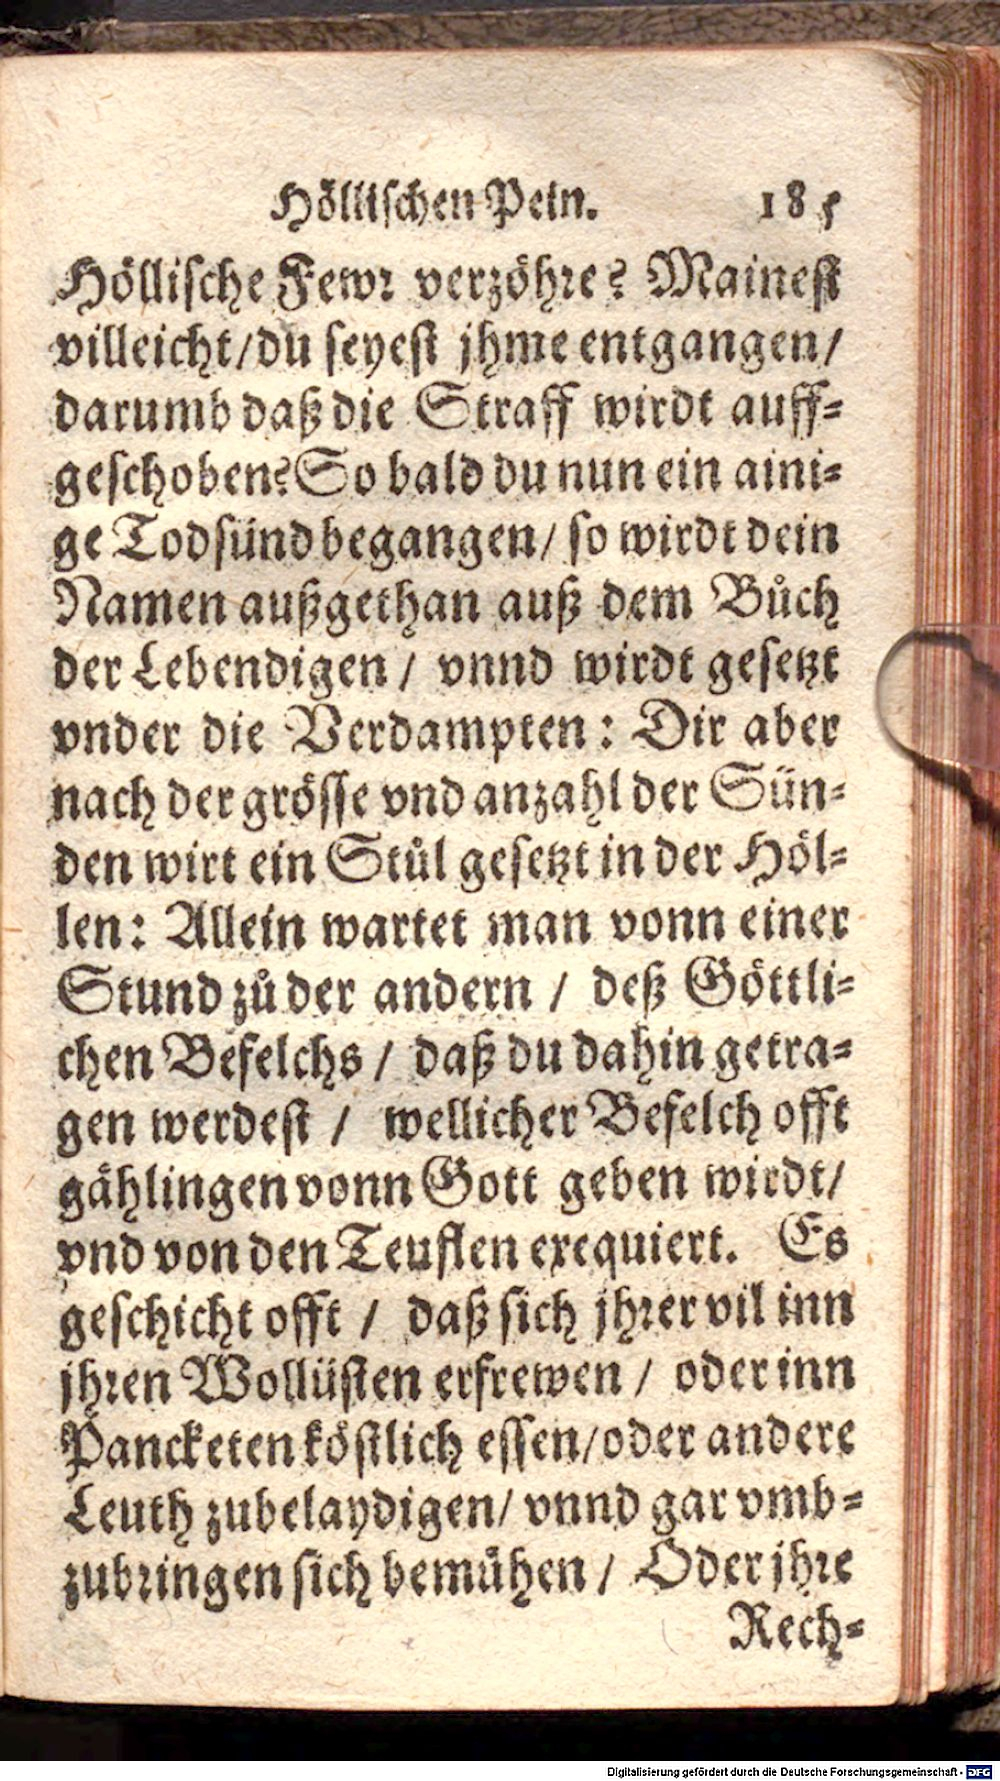 Höllischen Pein. 185
Höllische Fewr verzöhre? Mainest
villeicht/du seyest jhme entgangen/
darumb daß die Straff wirdt auff-
geschoben? So bald du nun ein aini-
ge Todsünd begangen/ so wirdt dein
Namen außgethan auß dem Bůch
der Lebendigen / vnnd wirdt gesetzt
vnder die Verdampten: Dir aber
nach der grösse vnd anzahl der Sün-
den wirt ein Stůl gesetzt in der Höl-
len: Allein wartet man vonn einer
Stund zů der andern / deß Göttli-
chen Befelchs / daß du dahin getra-
gen werdest / wellicher Befelch offt
gählingen vonn Gott geben wirdt/
vnd von den Teuflen exequiert. Es
geschicht offt / daß sich jhrer vil inn
jhren Wollüsten erfrewen / oder inn
Pancketen köstlich essen/oder andere
Leuth zubelaydigen/ vnnd gar vmb-
zubringen sich bemühen / Oder jhre
Rech-
Digitalisierung gefördert durch die Deutsche Forschungsgemeinschaft - DFG